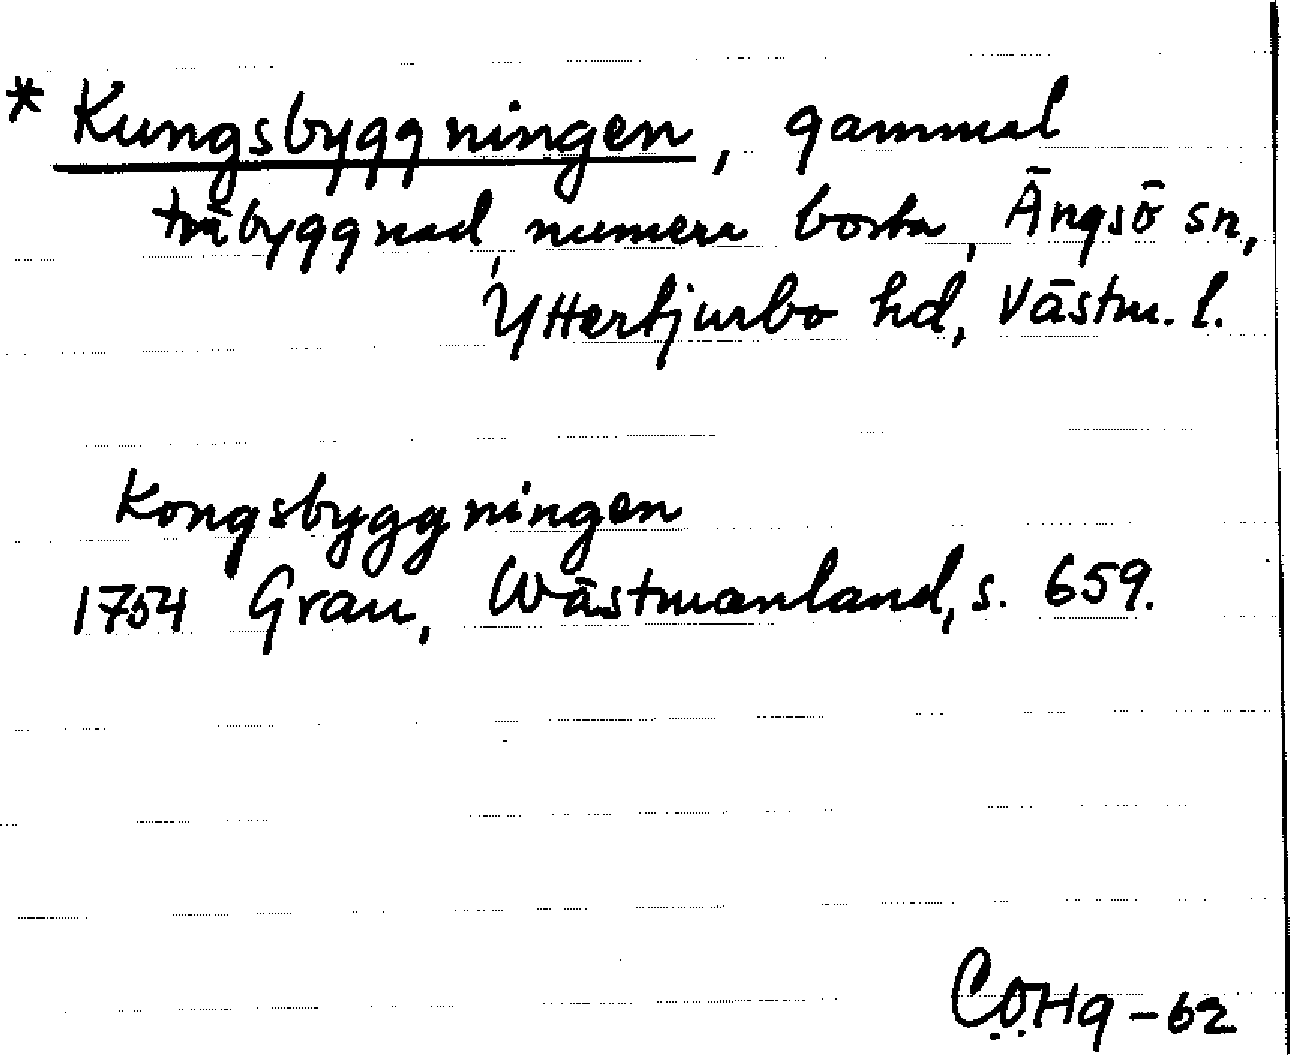 * Kungsbyggningen, gammal
träbyggnad, numera borta, Ängsö sn,
Yttertjurbo hd, Västm. l.
Kongsbyggningen
1754 Grau, Wästmanland, s. 659.
C.O.Hg -62